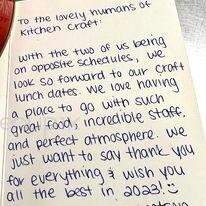 To the lovely humans of
Kitchen Craft:
with the two of us being
on opposite schedules, we
look so forward to our craft
lunch dates. We love having
a place to go with such
great food, incredible staff,
and perfect atmosphere. We
just want to say thank you
for everything & wish you
all the best in 2023! :)